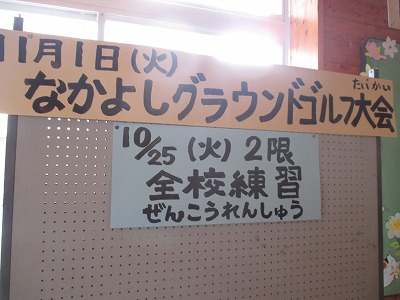 11月1日(火)
たいかい
なかよしグラウンドゴルフ大会
10/25(火)2限
全校練習
ぜんこうれんしゅう